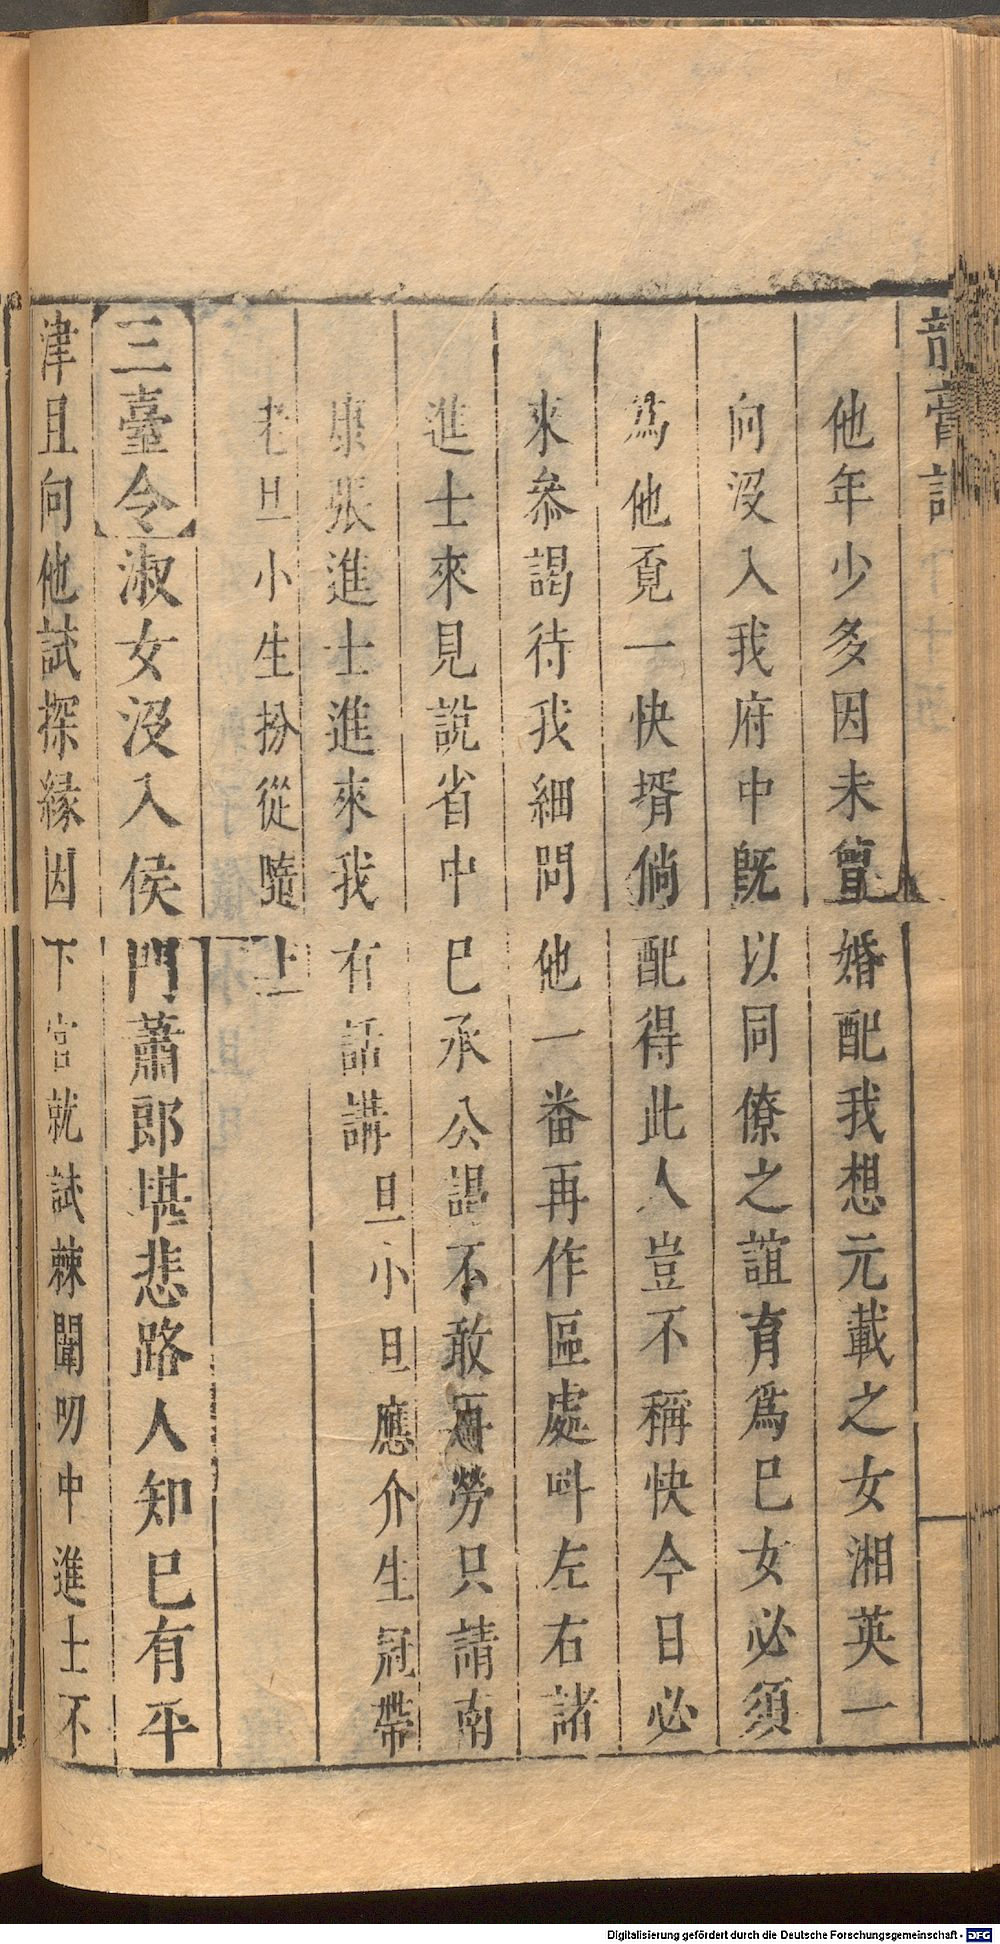 他年少多因未曾婚配我想元載之女湘英一
向沒入我府中既以同僚之誼育爲巳女必須
爲他覓一快壻倘配得此人豈不稱快今日必
來叅謁待我細問他一番再作區處叫左右諸
進士來見說省中巳承公謁不敢再勞只請南
康張進士進來我有話講旦小旦應介生冠帶
老旦小生扮從隨上
三臺令淑女沒入侯門蕭郎堪悲路人知巳有平
津且向他試探緣因下官就試棘闈叨中進士不
Digitalisierung gefördert durch die Deutsche Forschungsgemeinschaft - DFG